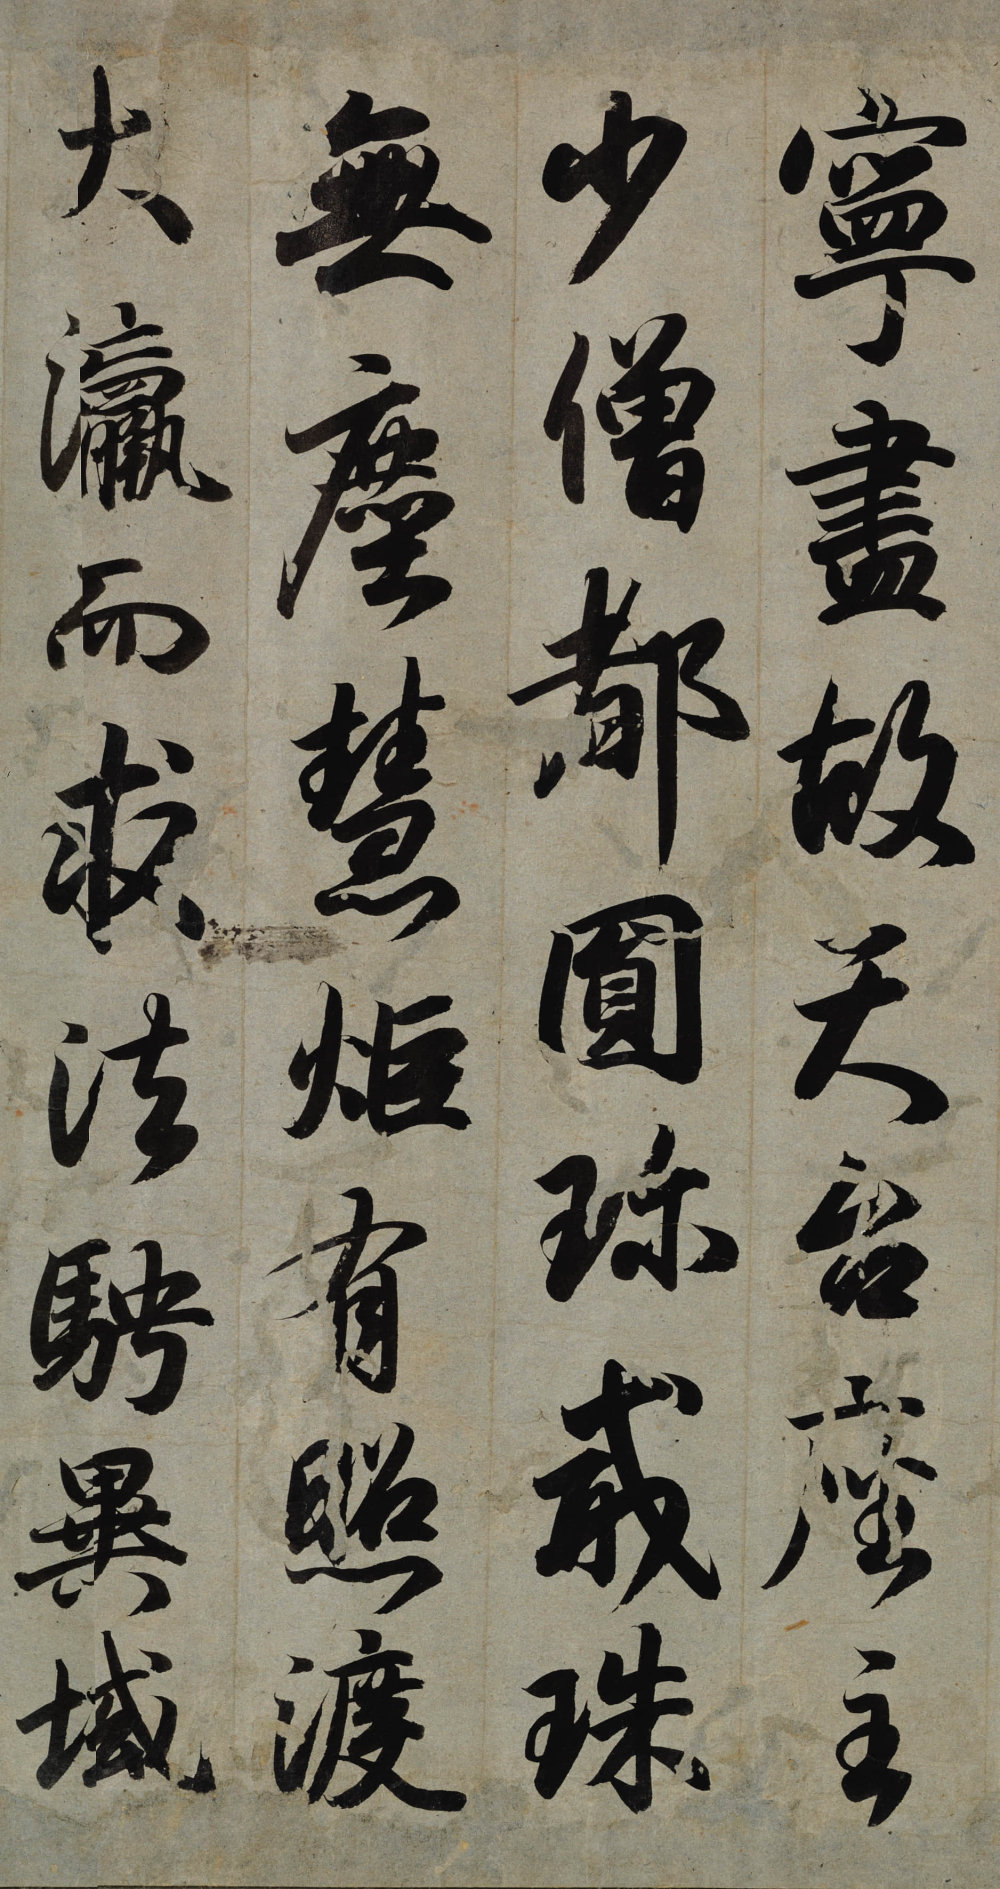 寧盡故天台座主
少僧都圓珍戒珠
無塵慧炬有照渡
大瀛而求法騁異域